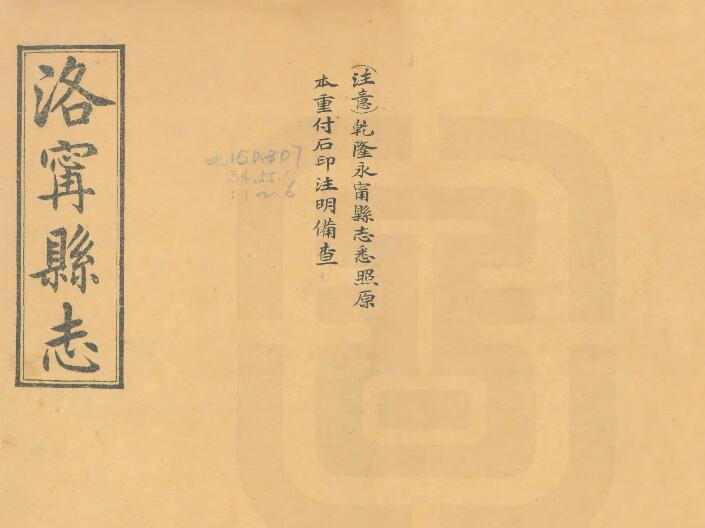 洛甯縣志
(注意)乾隆永甯縣志悉照原
本重付石印注明備查
150.307
34.55.1